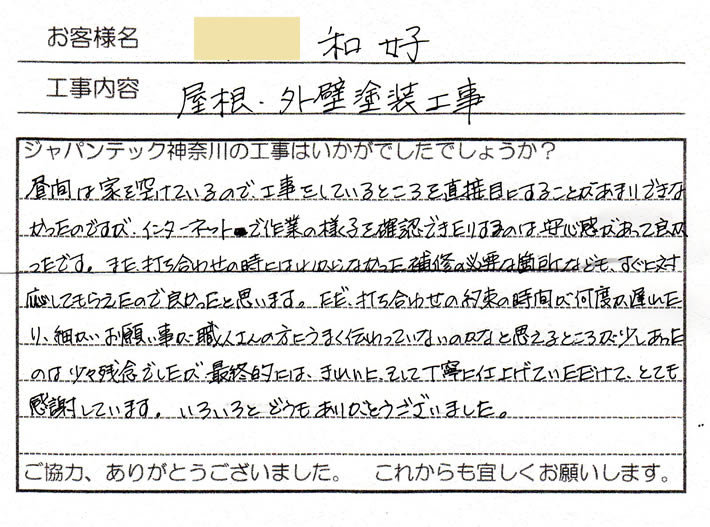 お客様名 和好
工事内容 屋根・外壁塗装工事
ジャパンテック神奈川の工事はいかがでしたでしょうか？
昼間は家を空けているので、工事をしているところを直接目にすることがあまりできな
かったのですが、インターネットで作業の様子を確認できたりするのは、安心感があって良か
ったです。また、打ち合わせの時にはわからなかった補修の必要な箇所なども、すぐに対
応してもらえたので良かったと思います。ただ、打ち合わせの約束の時間が何度か遅れた
り、細かいお願い事が職人さんの方にうまく伝わっていないのかなと思えるところが少しあった
のは少々残念でしたが、最終的には、きれいに、そして丁寧に仕上げていただけて、とても
感謝しています。いろいろとどうもありがとうございました。
ご協力、ありがとうございました。 これからも宜しくお願いします。